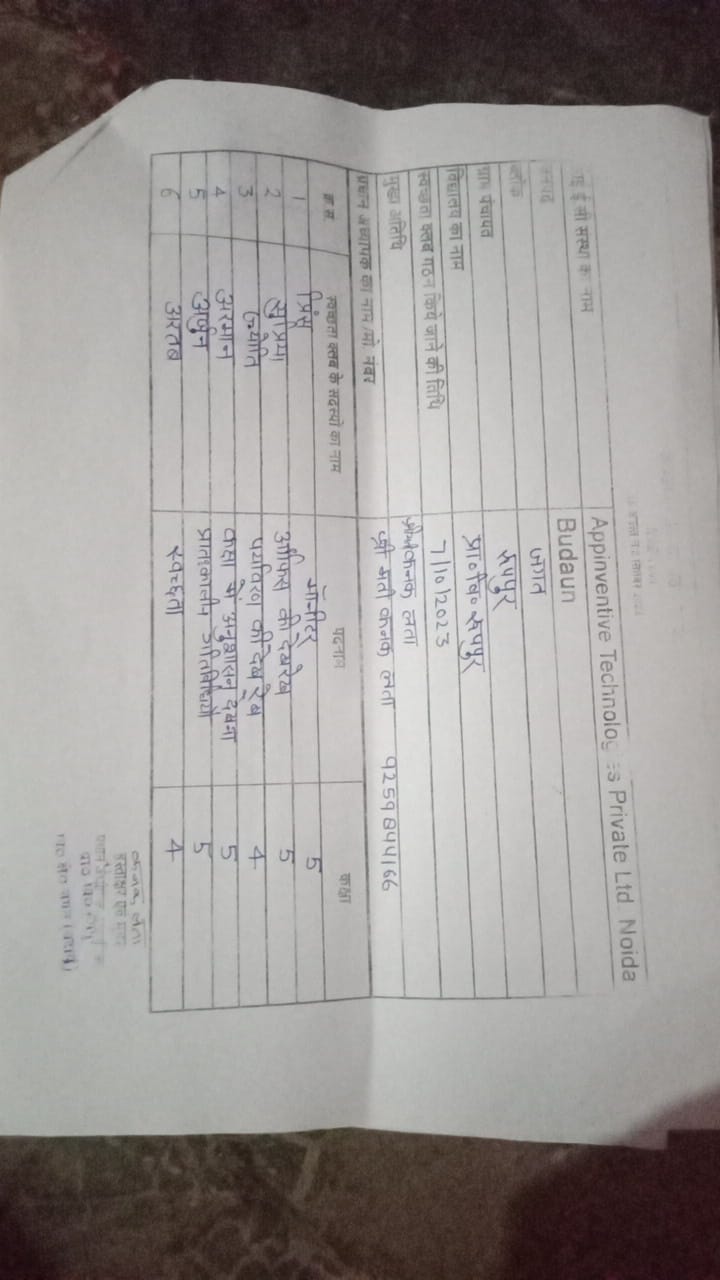 आई ई सी संस्था का नाम Appinventive Technologies Private Ltd Noida
जनपद Budaun
ब्लॉक जगत
ग्राम पंचायत रूपपुर
विद्यालय का नाम प्रा०वि० रूपपुर
स्वच्छता क्लब गठन किये जाने की तिथि 7/10/2023
मुख्य अतिथि कनक लता
प्रधान अध्यापक का नाम /मो. नंबर श्री मती कनक लता 9259844166
क्र.स. स्वच्छता क्लब के सदस्यों का नाम पदनाम कक्षा
1 प्रिंस मॉनीटर 5
2 सुप्रिया ऑफिस की देखरेख 5
3 ज्योति पर्यावरण की देख रेख 4
4 अरमान कक्षा में अनुशासन देखना 5
5 अर्जुन प्रातःकालीन गतिविधियाँ 5
6 अरतब स्वच्छता 4
कनक लता
हस्ताक्षर एवं मुहर